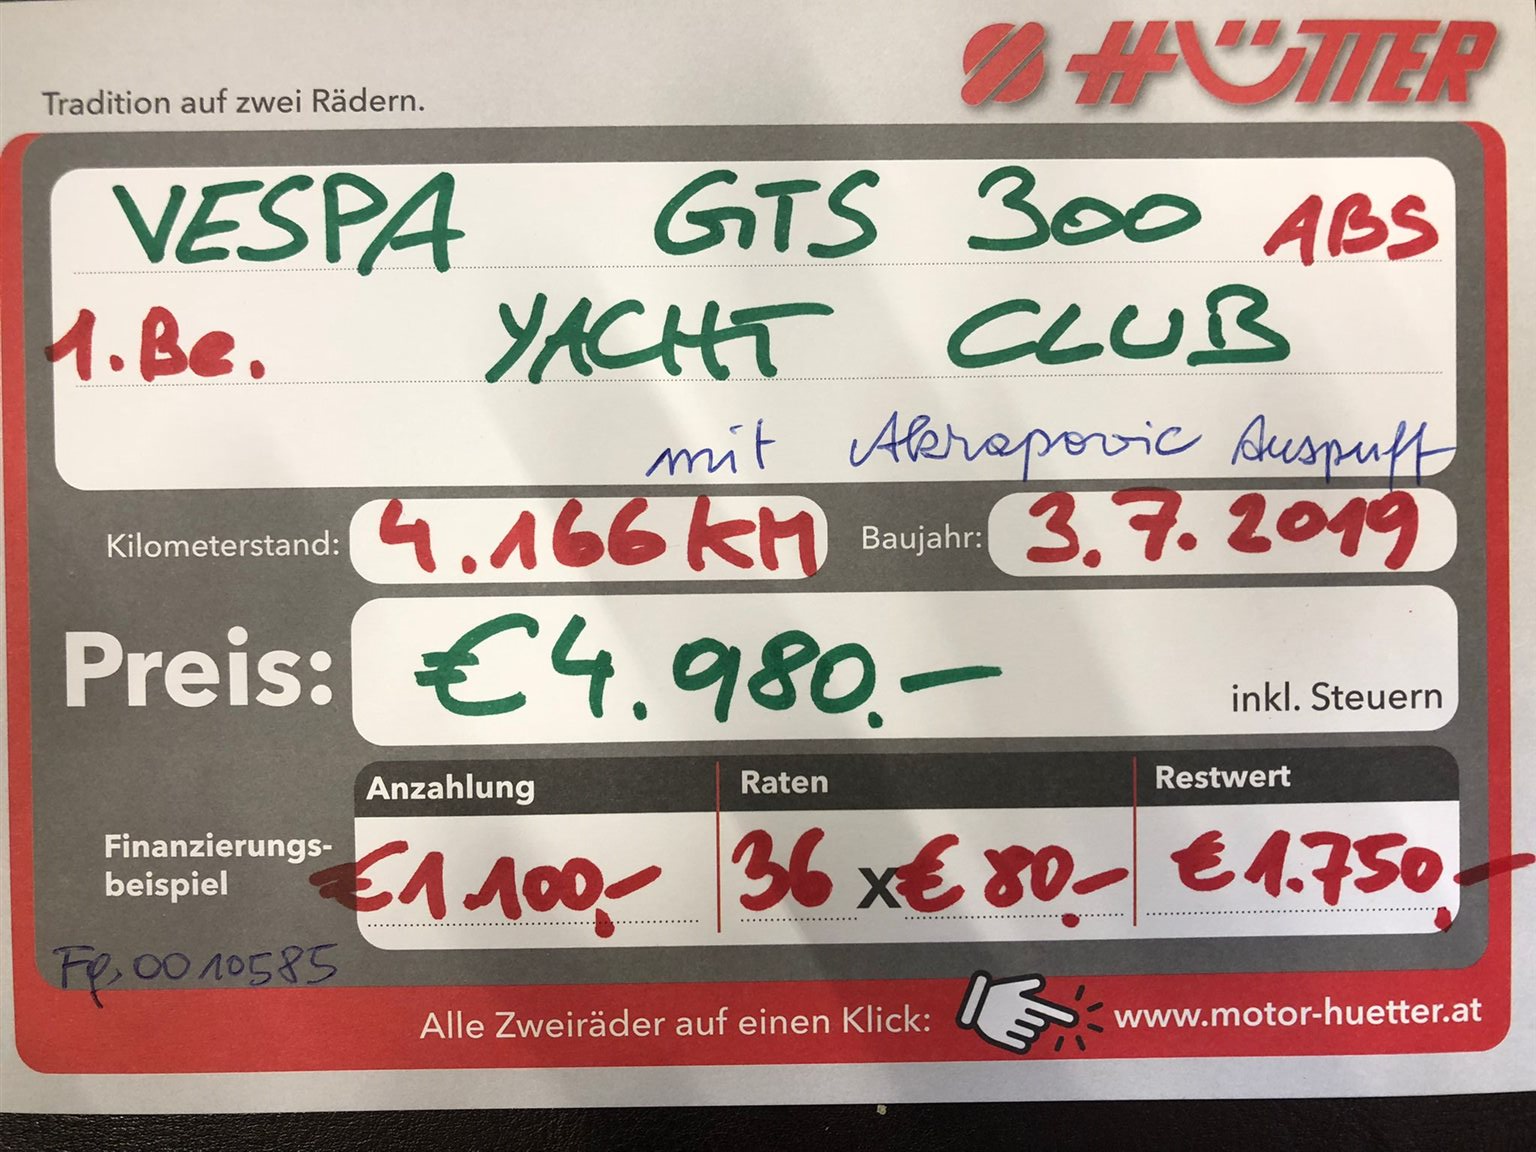 HÜTTER
Tradition auf zwei Rädern.
VESPA GTS 300 ABS
1.Be. YACHT CLUB
mit Akrapovic Auspuff
Kilometerstand: 4.166 KM Baujahr: 3.7.2019
Preis: € 4.980.- inkl. Steuern
Anzahlung Raten Restwert
Finanzierungs-
beispiel
€ 1.100,- 36 x € 80,- € 1.750,-
Fg. 0010585
Alle Zweiräder auf einen Klick: www.motor-huetter.at